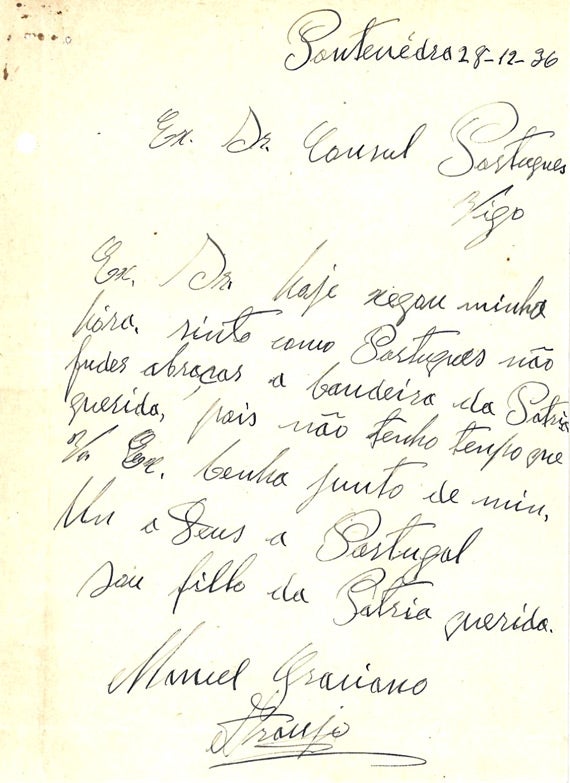 Pontevédra 28-12-36
Ex. Sr. Consul Portugues
Vigo
Ex. Sr. hoje xegou minha
hóra, sinto como Portugues não
puder abraçar a bandeira da Pátria
querida, pois não tenho tempo que
Va Ex. benha junto de min,
Un a Deus a Portugal
sou filho da Pátria querida.
Manuel Graciano
Araujo